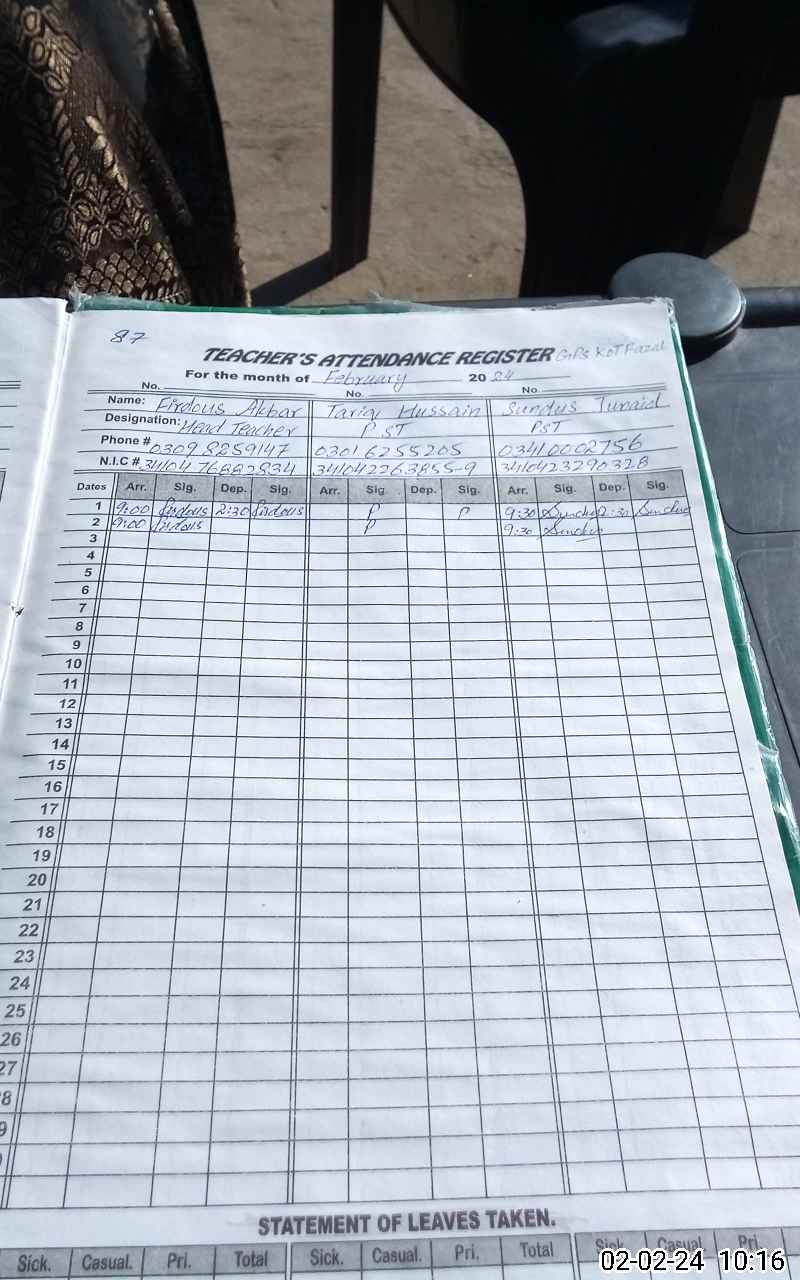 87
TEACHER'S ATTENDANCE REGISTER GPS Kot Fazal
For the month of February 2024
No. No. No.
Name: Firdous Akbar Tariq Hussain Sundus Junaid
Designation: Head Teacher PST PST
Phone # 03098259147 03016255205 03410002756
N.I.C # 3410476682834 341042263855-9 3410423290328
Dates Arr. Sig. Dep. Sig. Arr. Sig. Dep. Sig. Arr. Sig. Dep. Sig.
1 9:00 firdous 2:30 firdous P P 9:30 Sundus 2:30 Sundus
2 9:00 firdous P 9:30 Sundus
3
4
5
6
7
8
9
10
11
12
13
14
15
16
17
18
19
20
21
22
23
24
25
26
27
8
9
STATEMENT OF LEAVES TAKEN.
Sick. Casual. Pri. Total Sick. Casual. Pri. Total Sick. Casual Pri.
02-02-24 10:16